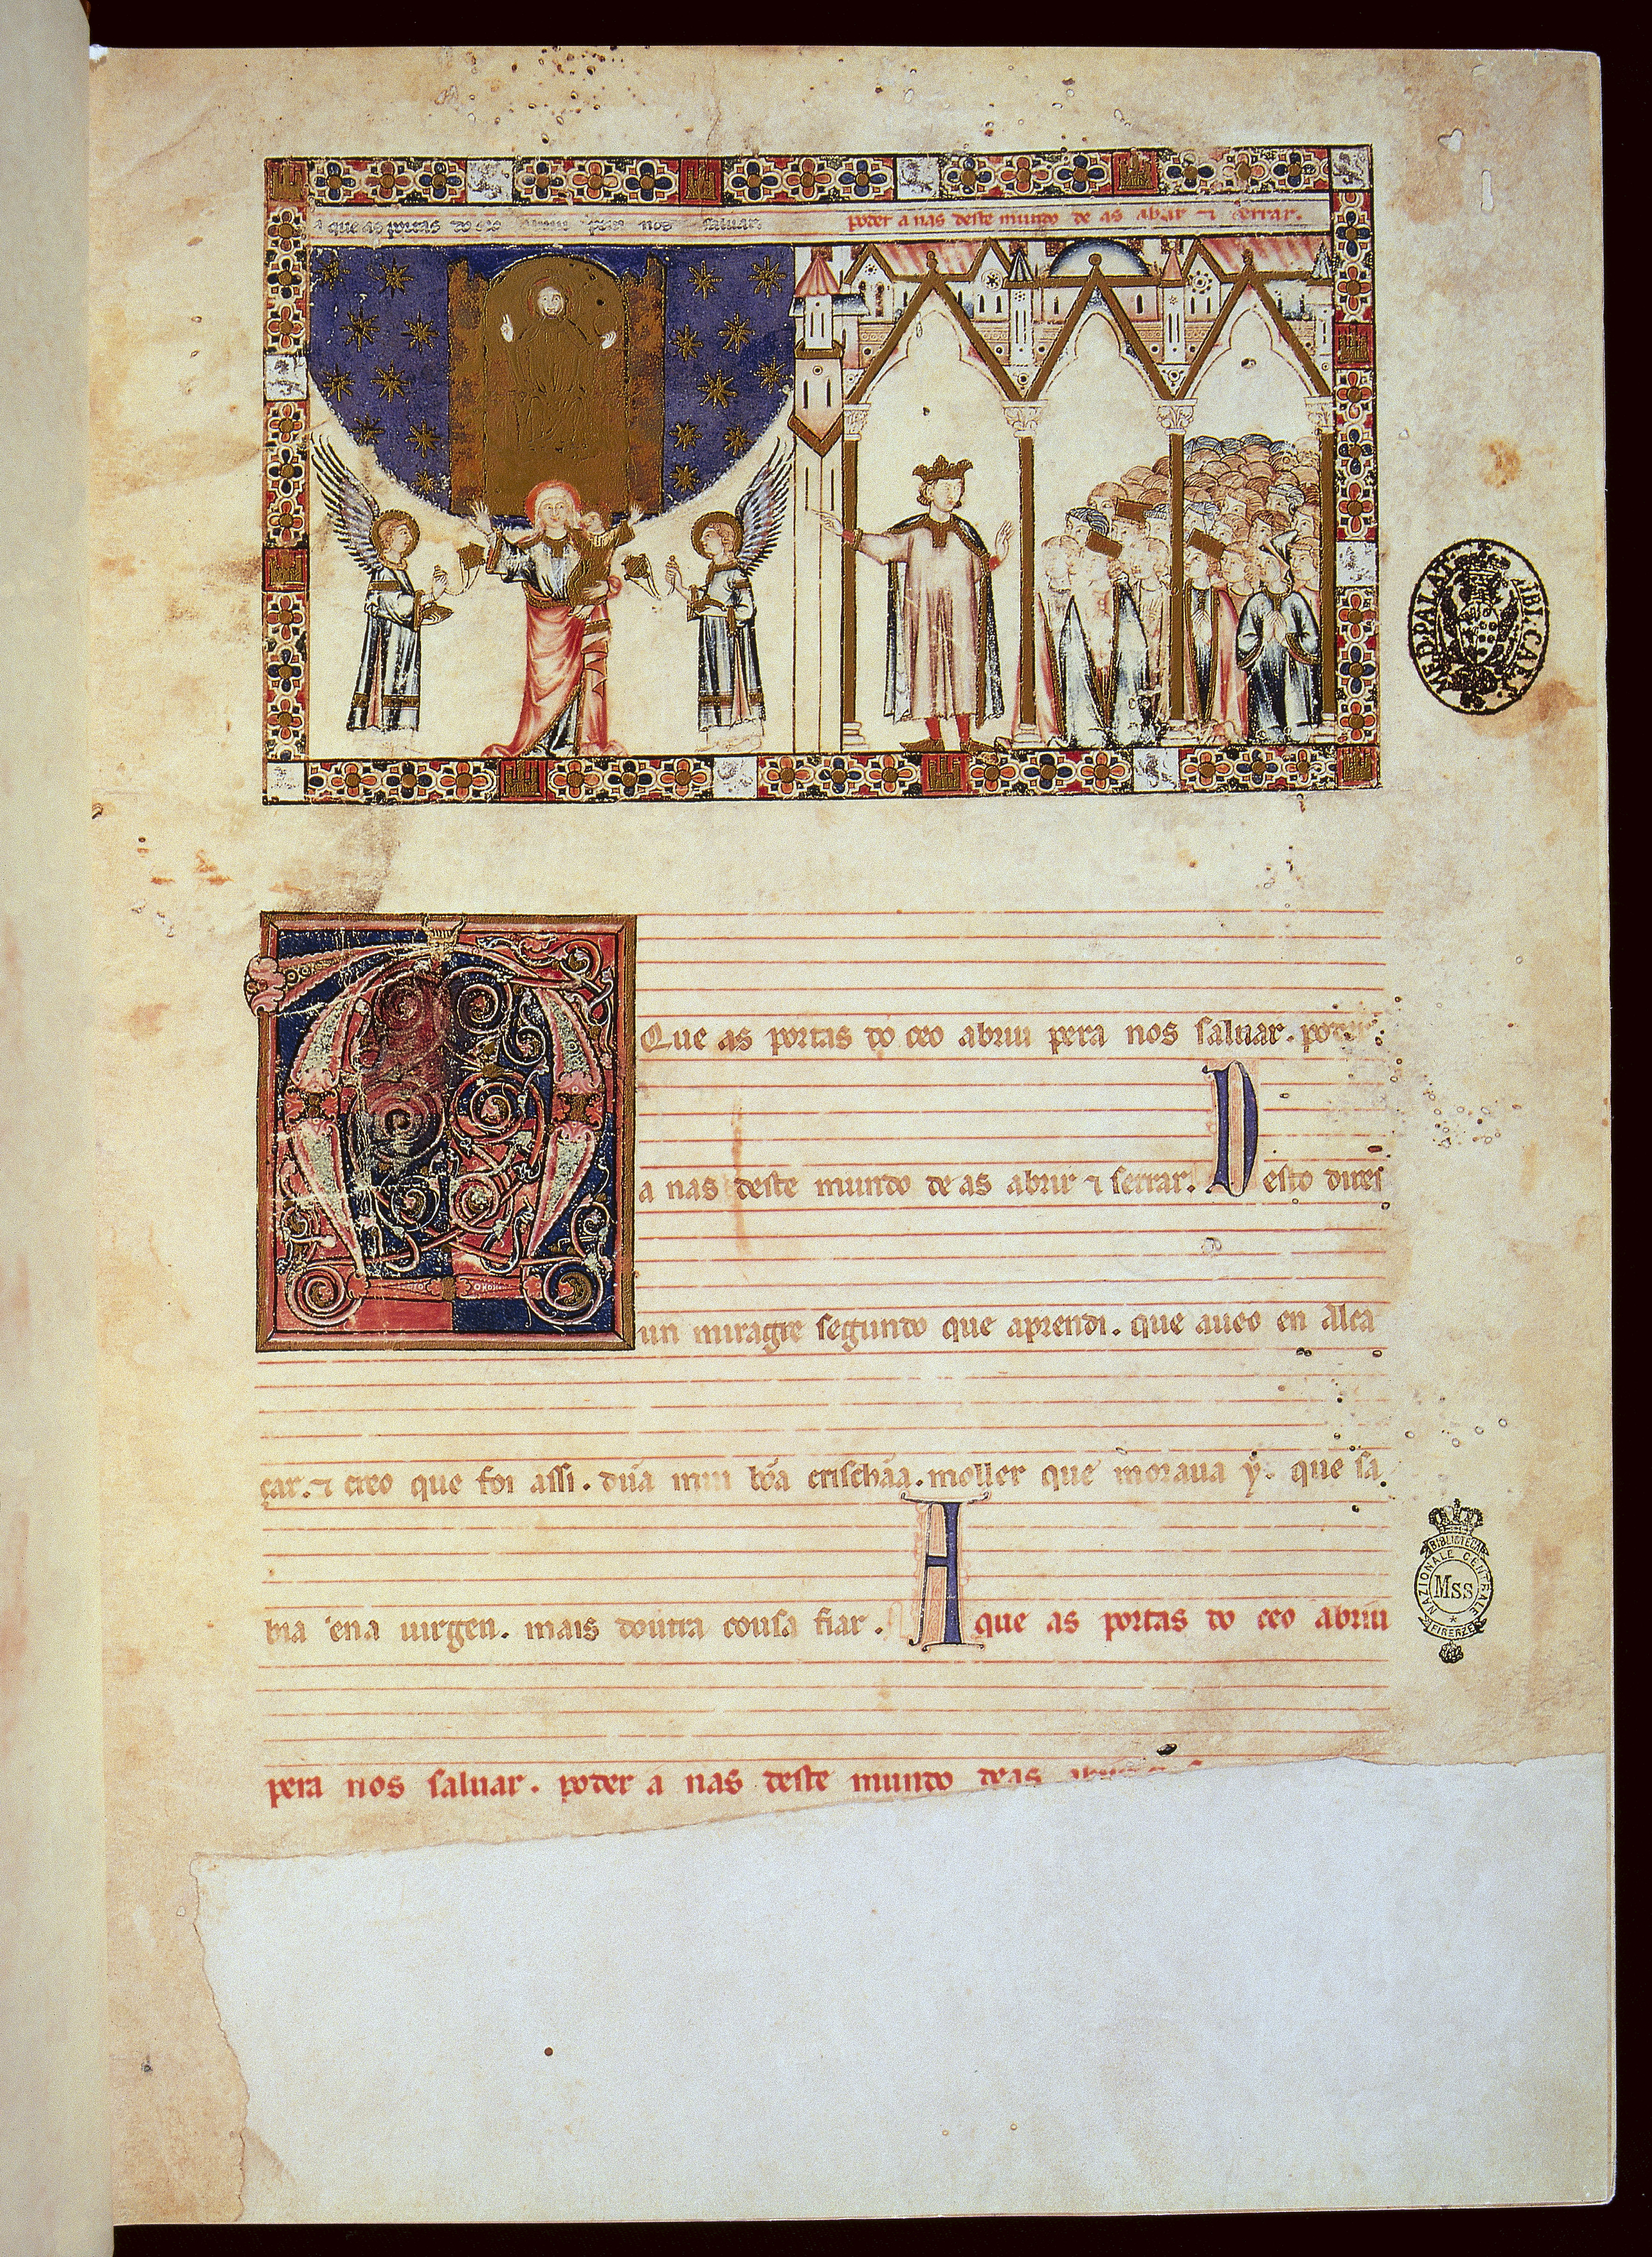 a que as portas do ceo abriu pera nos saluar.
poder a nas deste mundo de as abrir ⁊ serrar.
A
Que as portas do ceo abriu pera nos saluar. poder
a nas deste mundo de as abrir ⁊ serrar. Desto direi
un miragre segundo que aprendi. que aueo en Alca
çar. ⁊ creo que foi assi. dũa mui bõa crischãa. moller que moraua y. que sa
bia ena uirgen. mais doutra cousa fiar. A que as portas do ceo abriu
pera nos saluar. poder a nas deste mundo de as
MED. PALAT. BIBL. CAES.
BIBLIOTECA
NAZIONALE CENTRALE
Mss
FIRENZE